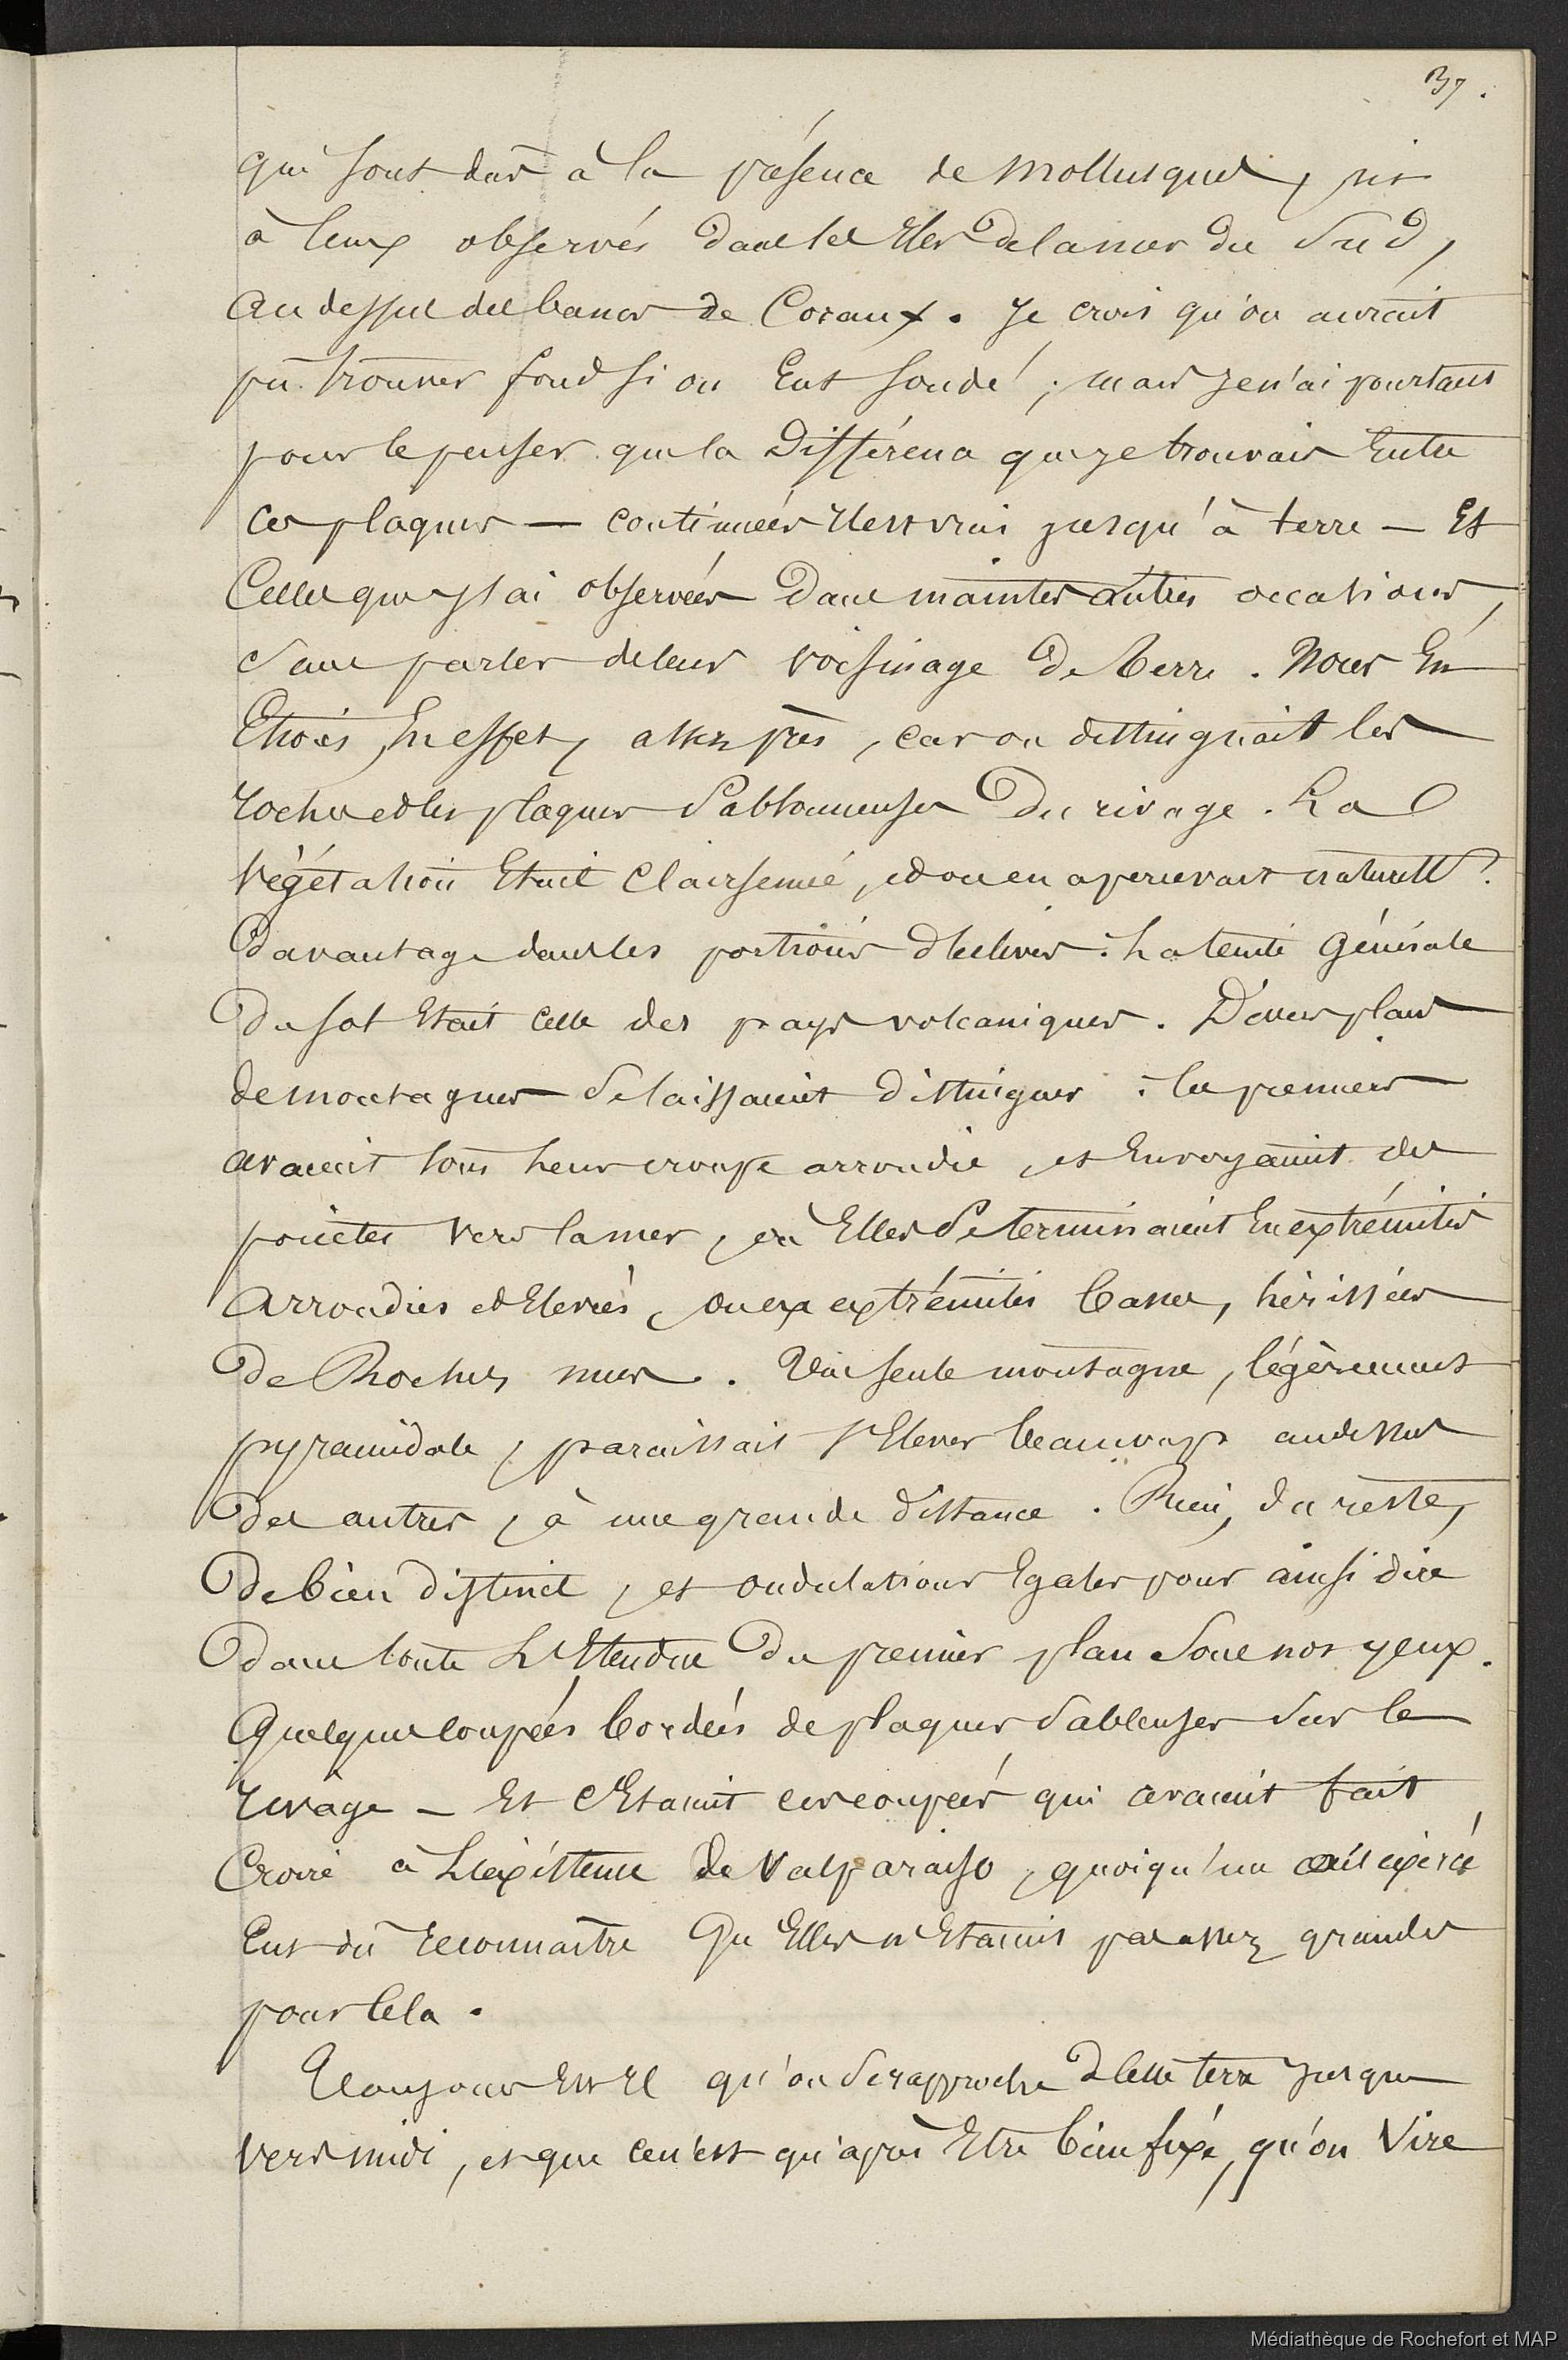 37.
qui sont dûs à la présence de Mollusques, ni
à ceux observés dans les Iles de la mer du Sud,
au dessus des bancs de Coraux. Je crois qu'on aurait
pû trouver fond si on eut sondé ; mais je n'ai pourtant
pour le penser que la différence que je trouvais entre
ces plaques — continuées il est vrai jusqu'à terre — Et
Celles que j'ai observées dans maintes autres occasions,
sans parler de leur voisinage de terre. Nous en
Etions, en effet, assez près, car on distinguait les
roches et les plaques sablonneuses du rivage. La
végétation Etait clairsemée, et on en apercevait naturellt
davantage dans les portions déclives. La teinte générale
du sol Etait celle des pays volcaniques. Divers plans
de montagnes se laissaient distinguer : les premiers
avaient tous leur croupe arrondie, et envoyaient des
pointes vers la mer, où Elles se terminaient en extrémités
arrondies et Elevées, ou en extrémités basses, hérissées
de Rochers nus. Une seule montagne, légèrement
pyramidale, paraissait s'Elever beaucoup au dessus
des autres, à une grande distance. Rien, du reste,
de bien distinct, et ondulations Egales pour ainsi dire
dans toute L'Etendue du premier plan sous nos yeux.
Quelques coupées bordées de plaques sableuses sur le
rivage — Et c'Etaient ces coupées qui avaient fait
Croire à L'existence de Valparaiso, quoiqu'un œil exercé
Eut dû reconnaître qu'Elles n'Etaient pas assez grandes
pour cela.
Toujours Est Il qu'on se rapproche de cette terre jusque
vers midi, et que ce n'est qu'après Etre bien fixé, qu'on vire
Médiathèque de Rochefort et MAP